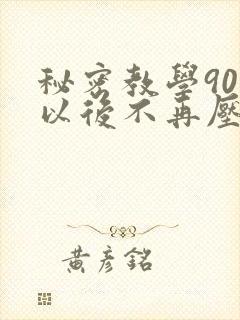 秘密教學90
以後不再壓
黃彥銘